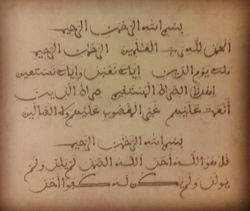 بسم الله الرحمن الرحيم
الحمد لله رب العلمين الرحمن الرحيم
ملك يوم الدين إياك نعبد وإياك نستعين
اهدنا الصراط المستقيم صراط الذين
أنعمت عليهم غير المغضوب عليهم ولا الضالين
بسم الله الرحمن الرحيم
قل هو الله أحد الله الصمد لم يلد ولم
يولد ولم يكن له كفوا أحد